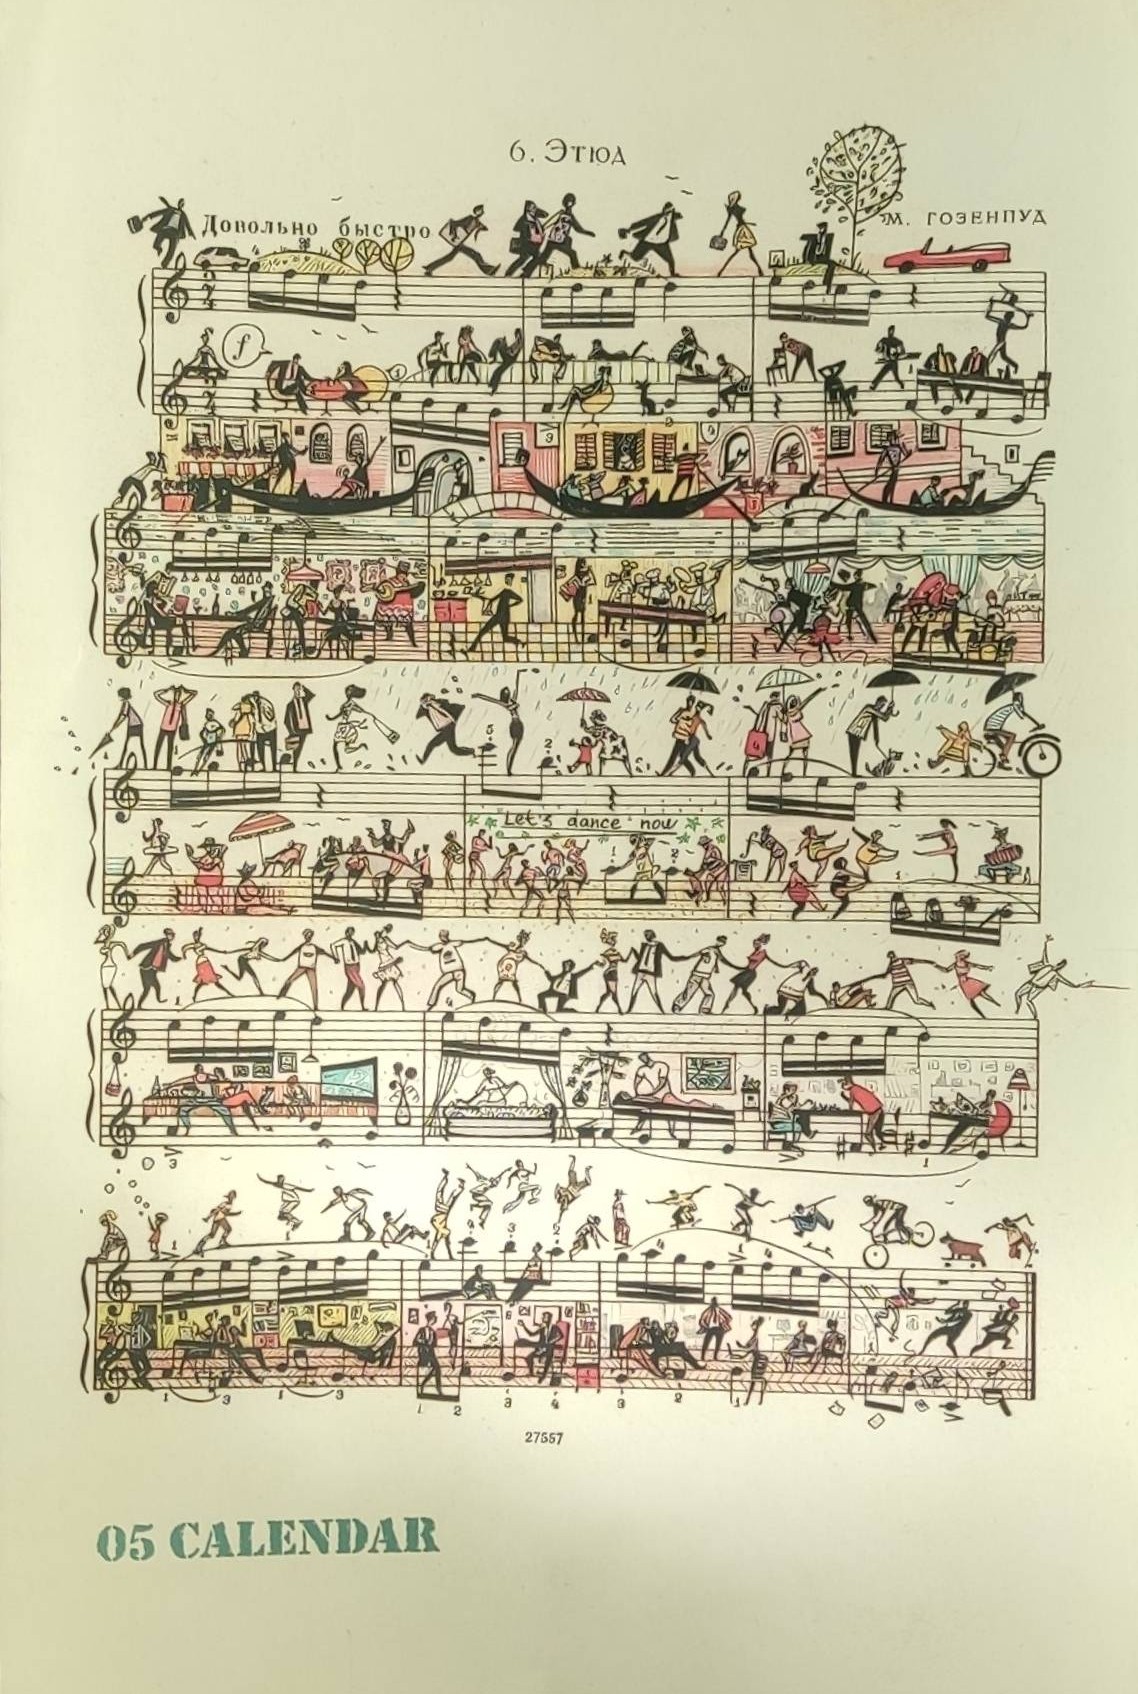 6. Этюд
Довольно быстро
М. ГОЗЕНПУД
f
Let's dance now
27557
05 CALENDAR